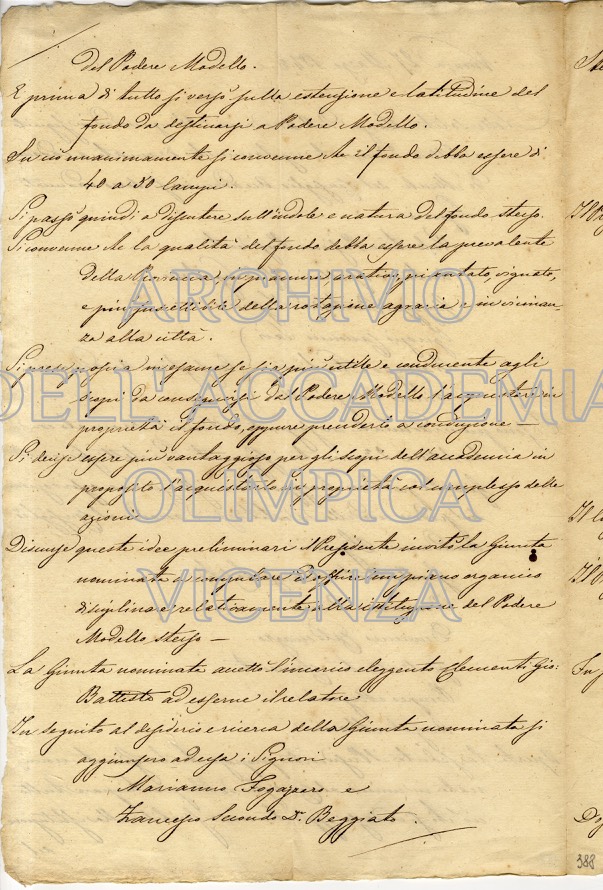 del Podere Modello.
E prima di tutto si versò sulla estensione e latitudine del
fondo da destinarsi a Podere Modello.
Su ciò unanimamente si convenne che il fondo debba essere di
40 a 50 campi.
Si passò quindi a discutere sull'indole e natura del fondo stesso.
Si convenne che la qualità del fondo debba essere la prevalente
della Provincia, in pianura arativo, piantato, vignato,
e più suscettibile della rotazione agraria e in vicinan-
za alla città.
Si prese poscia in esame se sia più utile e conducente agli
scopi da conseguirsi del Podere Modello l'acquistare in
proprietà il fondo, oppure prenderlo a conduzione —
Si decise essere più vantaggioso per gli scopi dell'accademia in
proposito l'acquistarlo in proprietà col complesso delle
azioni
Discusse queste idee preliminari il Presidente invitò la Giunta
nominata a compilare ed offrire un piano organico
disciplinare relativamente alla istituzione del Podere
Modello stesso —
La Giunta nominata accettò l'incarico eleggento Clementi Gio:
Battista ad esserne il relatore
In seguito al desiderio e ricerca della Giunta nominata si
aggiunsero ad essa i Signori
Marianno Fogazzaro e
Francesco Secondo Dr. Beggiato.
388
ARCHIVIO
DELL'ACCADEMIA
OLIMPICA
VICENZA